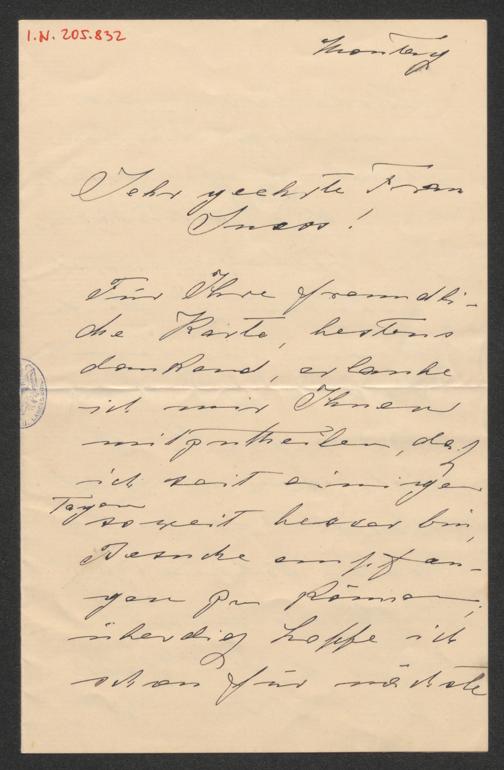 I.N. 205.832
Montag
Sehr geehrte Frau
Für Ihre freundli-
che Karte, bestens
dankend, erlaube
ich mir Ihnen
mitzutheilen, daß
ich seit einigen
Tagen
soweit besser bin,
Besuche empfan-
gen zu können,
überdies hoffe ich
schon für nächste